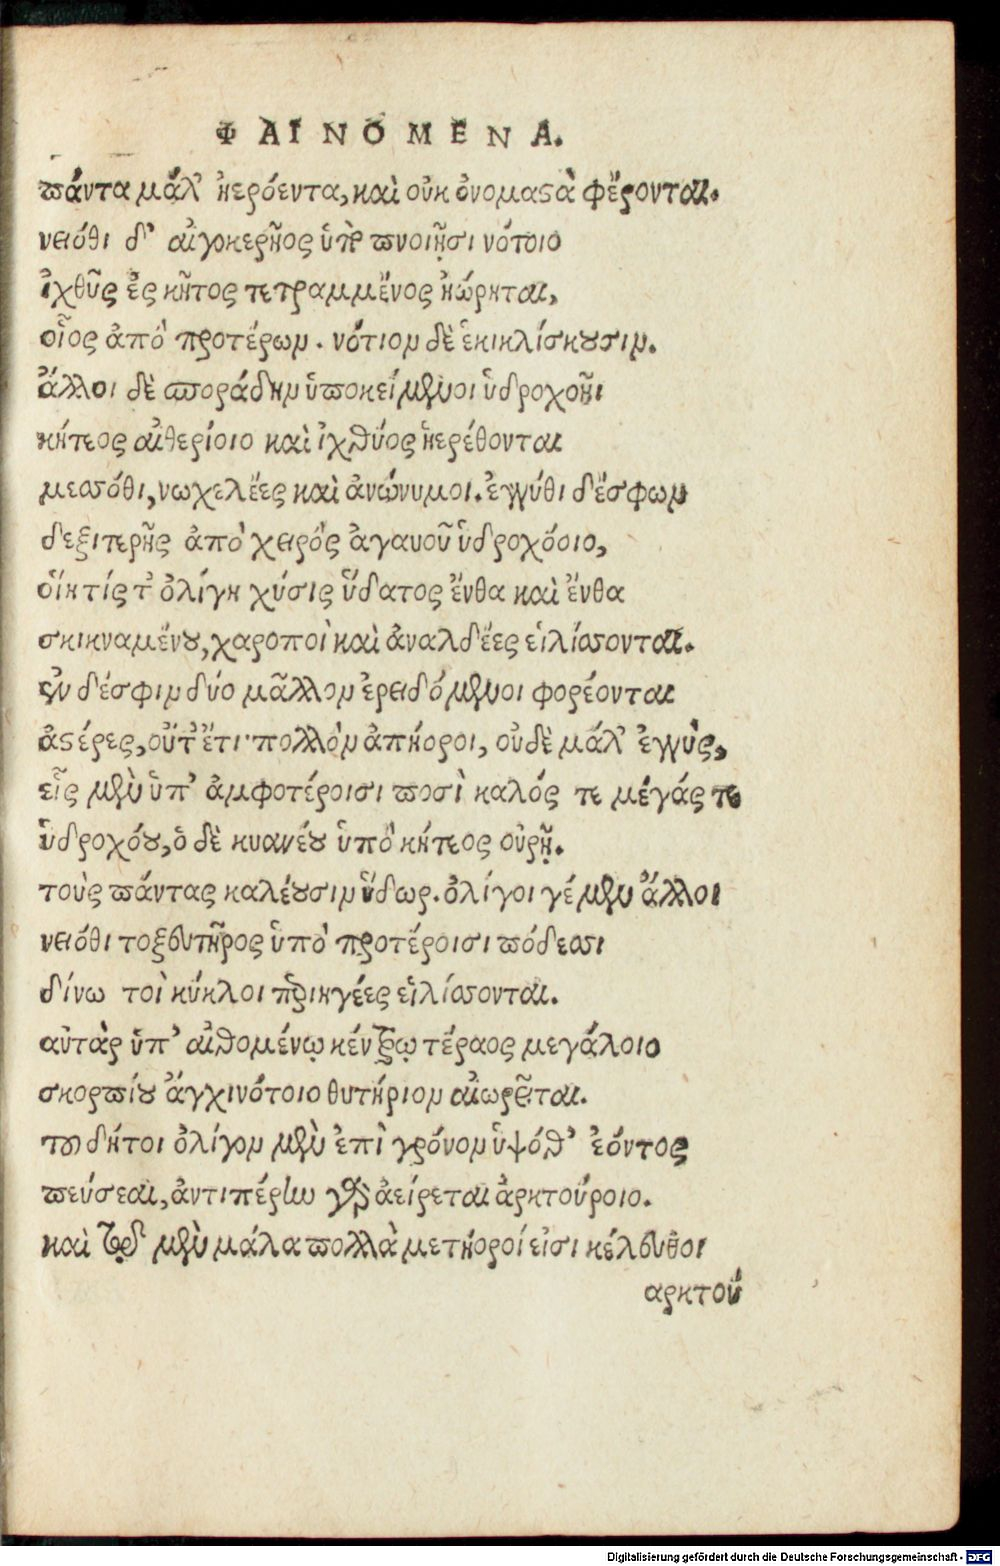 ΦΑΙΝΟΜΕΝΑ.
πάντα μάλ' ἠερόεντα, καὶ οὐκ ὀνομαστὰ φέρονται.
νειόθι δ' αἰγοκερῆος ὑπὸ πνοιῇσι νότοιο
ἰχθῦς ἐς κῆτος τετραμμένος ᾐώρηται,
οἶος ἀπὸ προτέρων. νότιον δὲ ἑ κικλίσκουσιν.
ἄλλοι δὲ σποράδην ὑποκείμενοι ὑδροχοῆι
κήτεος αἰθερίοιο καὶ ἰχθύος ἠερέθονται
μεσσόθι, νωχελέες καὶ ἀνώνυμοι. ἐγγύθι δέσφων
δεξιτερῆς ἀπὸ χειρὸς ἀγαυοῦ ὑδροχόοιο,
οἵη τίς τ' ὀλίγη χύσις ὕδατος ἔνθα καὶ ἔνθα
σκικναμένου, χαροποὶ καὶ ἀναλδέες εἱλίσσονται.
ἐν δέσφιν δύο μᾶλλον ἐρειδόμενοι φορέονται
ἀστέρες, οὔτ' ἔτι πολλὸν ἀπήοροι, οὐδὲ μάλ' ἐγγὺς,
εἷς μὲν ὑπ' ἀμφοτέροισι ποσὶ καλός τε μέγάς τε
ὑδροχόου, ὁ δὲ κυανέου ὑπὸ κήτεος οὐρῇ.
τοὺς πάντας καλέουσιν ὕδωρ. ὀλίγοι γέ μεν ἄλλοι
νειόθι τοξευτῆρος ὑπὸ προτέροισι πόδεσσι
δίνω τοὶ κύκλοι περιηγέες εἱλίσσονται.
αὐτὰρ ὑπ' αἰθομένῳ κέντρῳ τέραος μεγάλοιο
σκορπίου ἄγχι νότοιο θυτήριον αἰωρεῖται.
τοῦ δήτοι ὀλίγον μὲν ἐπὶ χρόνον ὑψόθ' ἐόντος
πεύσεαι, ἀντιπέρην γὰρ ἀείρεται ἀρκτούροιο.
καὶ τῷ μὲν μάλα πολλὰ μετήοροί εἰσι κέλευθοι
αρκτού